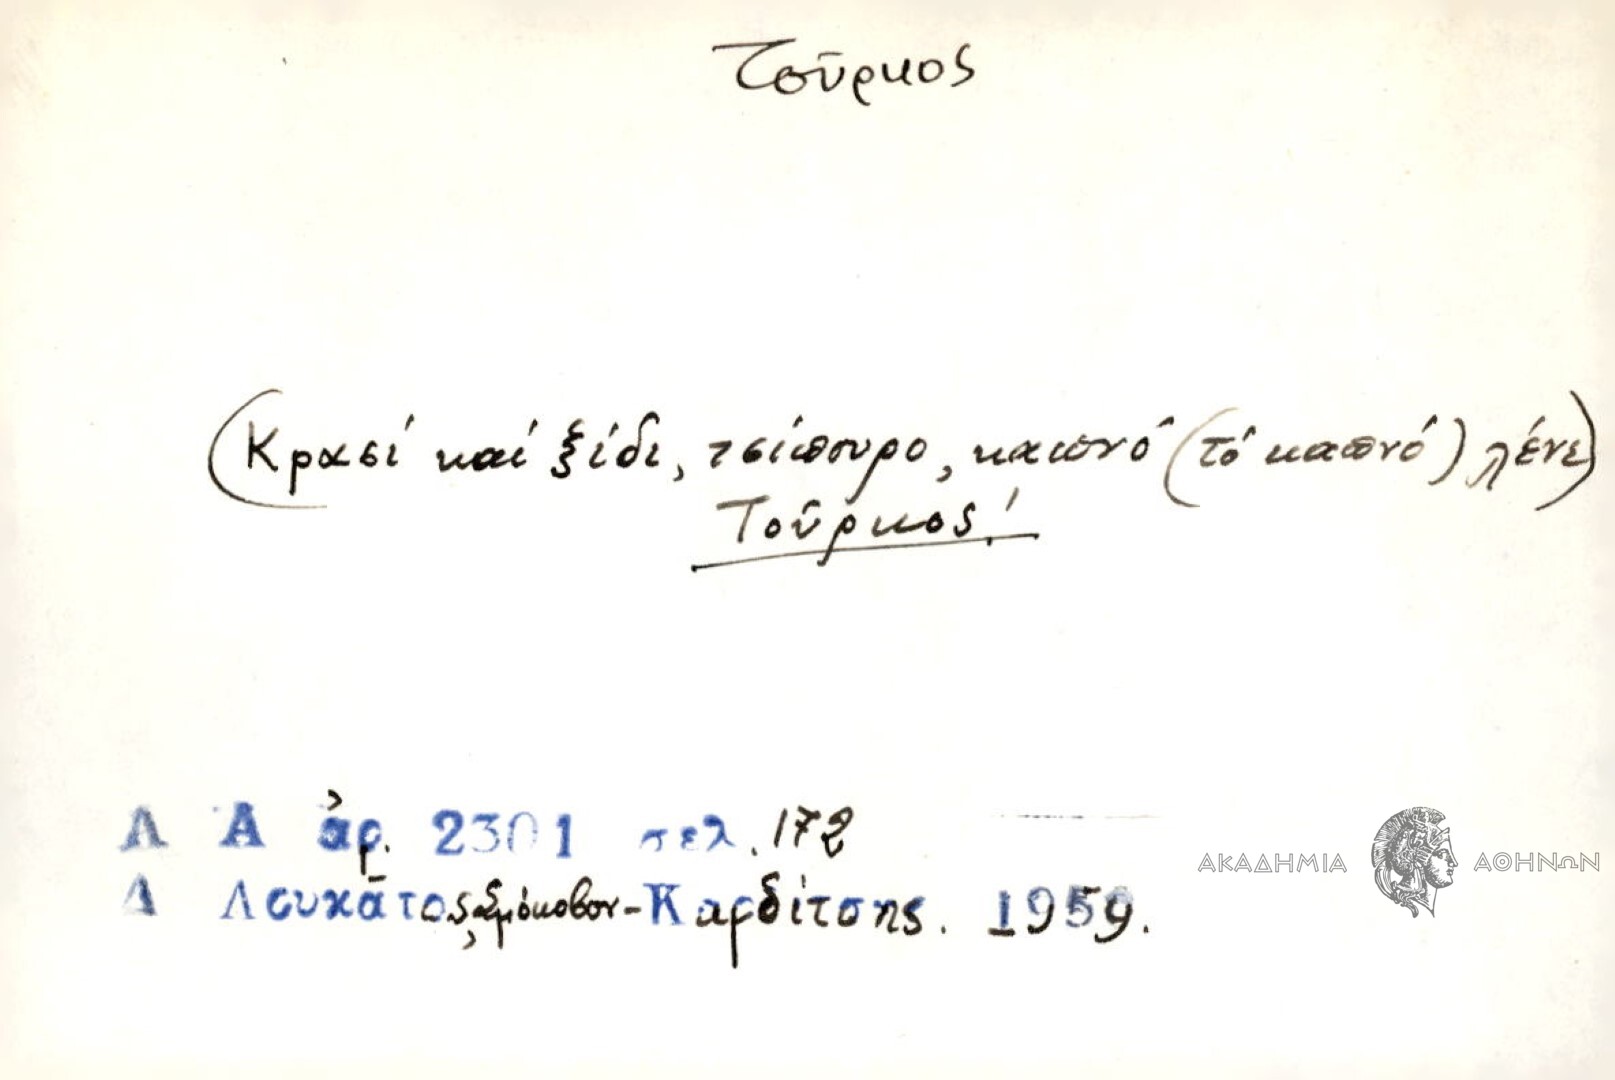 Τοῦρκος
(Κρασί καί ξίδι, τσίπουρο, καπνό (τό καπνό) λένε)
Τοῦρκος!
Λ Α ἀρ. 2301 σελ. 172
Δ Λουκᾶτος, Σμόκοβον - Καρδίτσης. 1959.
ΑΚΑΔΗΜΙΑ ΑΘΗΝΩΝ